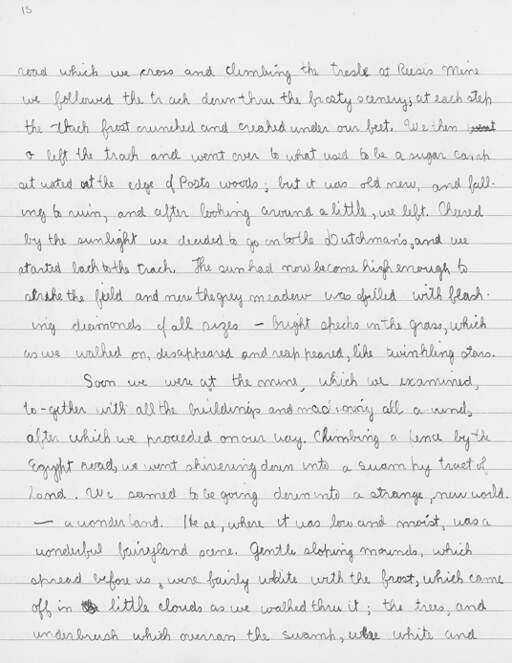 13
road which we cross and climbing the tresle at Reesis Mine
we followed the track down thru the frosty scenery; at each step
the thick frost crunched and creaked under our feet. We then went
& left the track and went over to what used to be a sugar camp
situated at the edge of Posts woods; but it was old new, and fall-
ing to ruin, and after looking around a little, we left. Cheered
by the sunlight we decided to go on to the Dutchman's, and we
started back to the track. The sun had now become high enough to
strike the field and new the grey meadow was filled with flash-
ing diamonds of all sizes — bright specks in the grass, which
as we walked on, disappeared and reappeared, like twinkling stars.
Soon we were at the mine, which we examined,
to-gether with all the buildings and machinery all around,
after which we proceeded on our way. Climbing a fence by the
Egypt road, we went shivering down into a swampy tract of
land. We seemed to be going down into a strange, new world.
— a wonderland. Here, where it was low and moist, was a
wonderful fairyland scene. Gentle sloping mounds, which
spread before us, were fairly white with the frost, which came
off in little clouds as we walked thru it; the trees, and
underbrush which overran the swamp, were white and